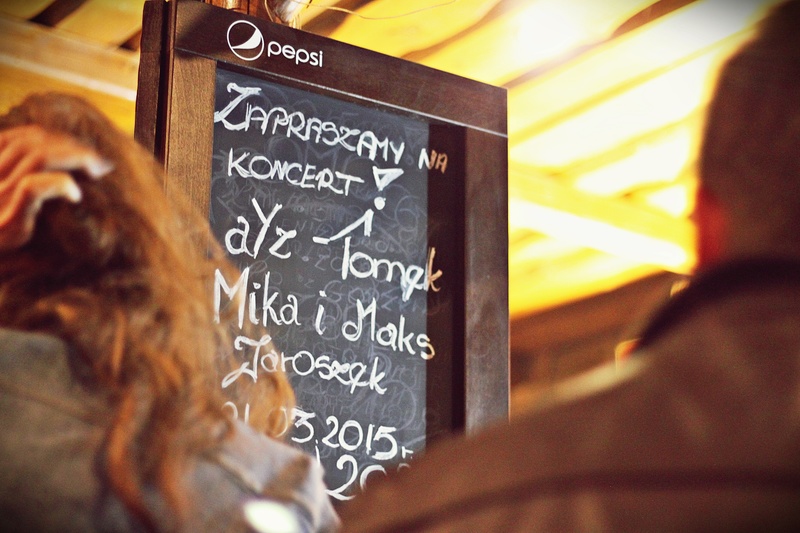 pepsi
ZAPRASZAMY NA
KONCERT!
aYz - Tomęk
Mika i Maks
Jaroszęk
03.2015r.